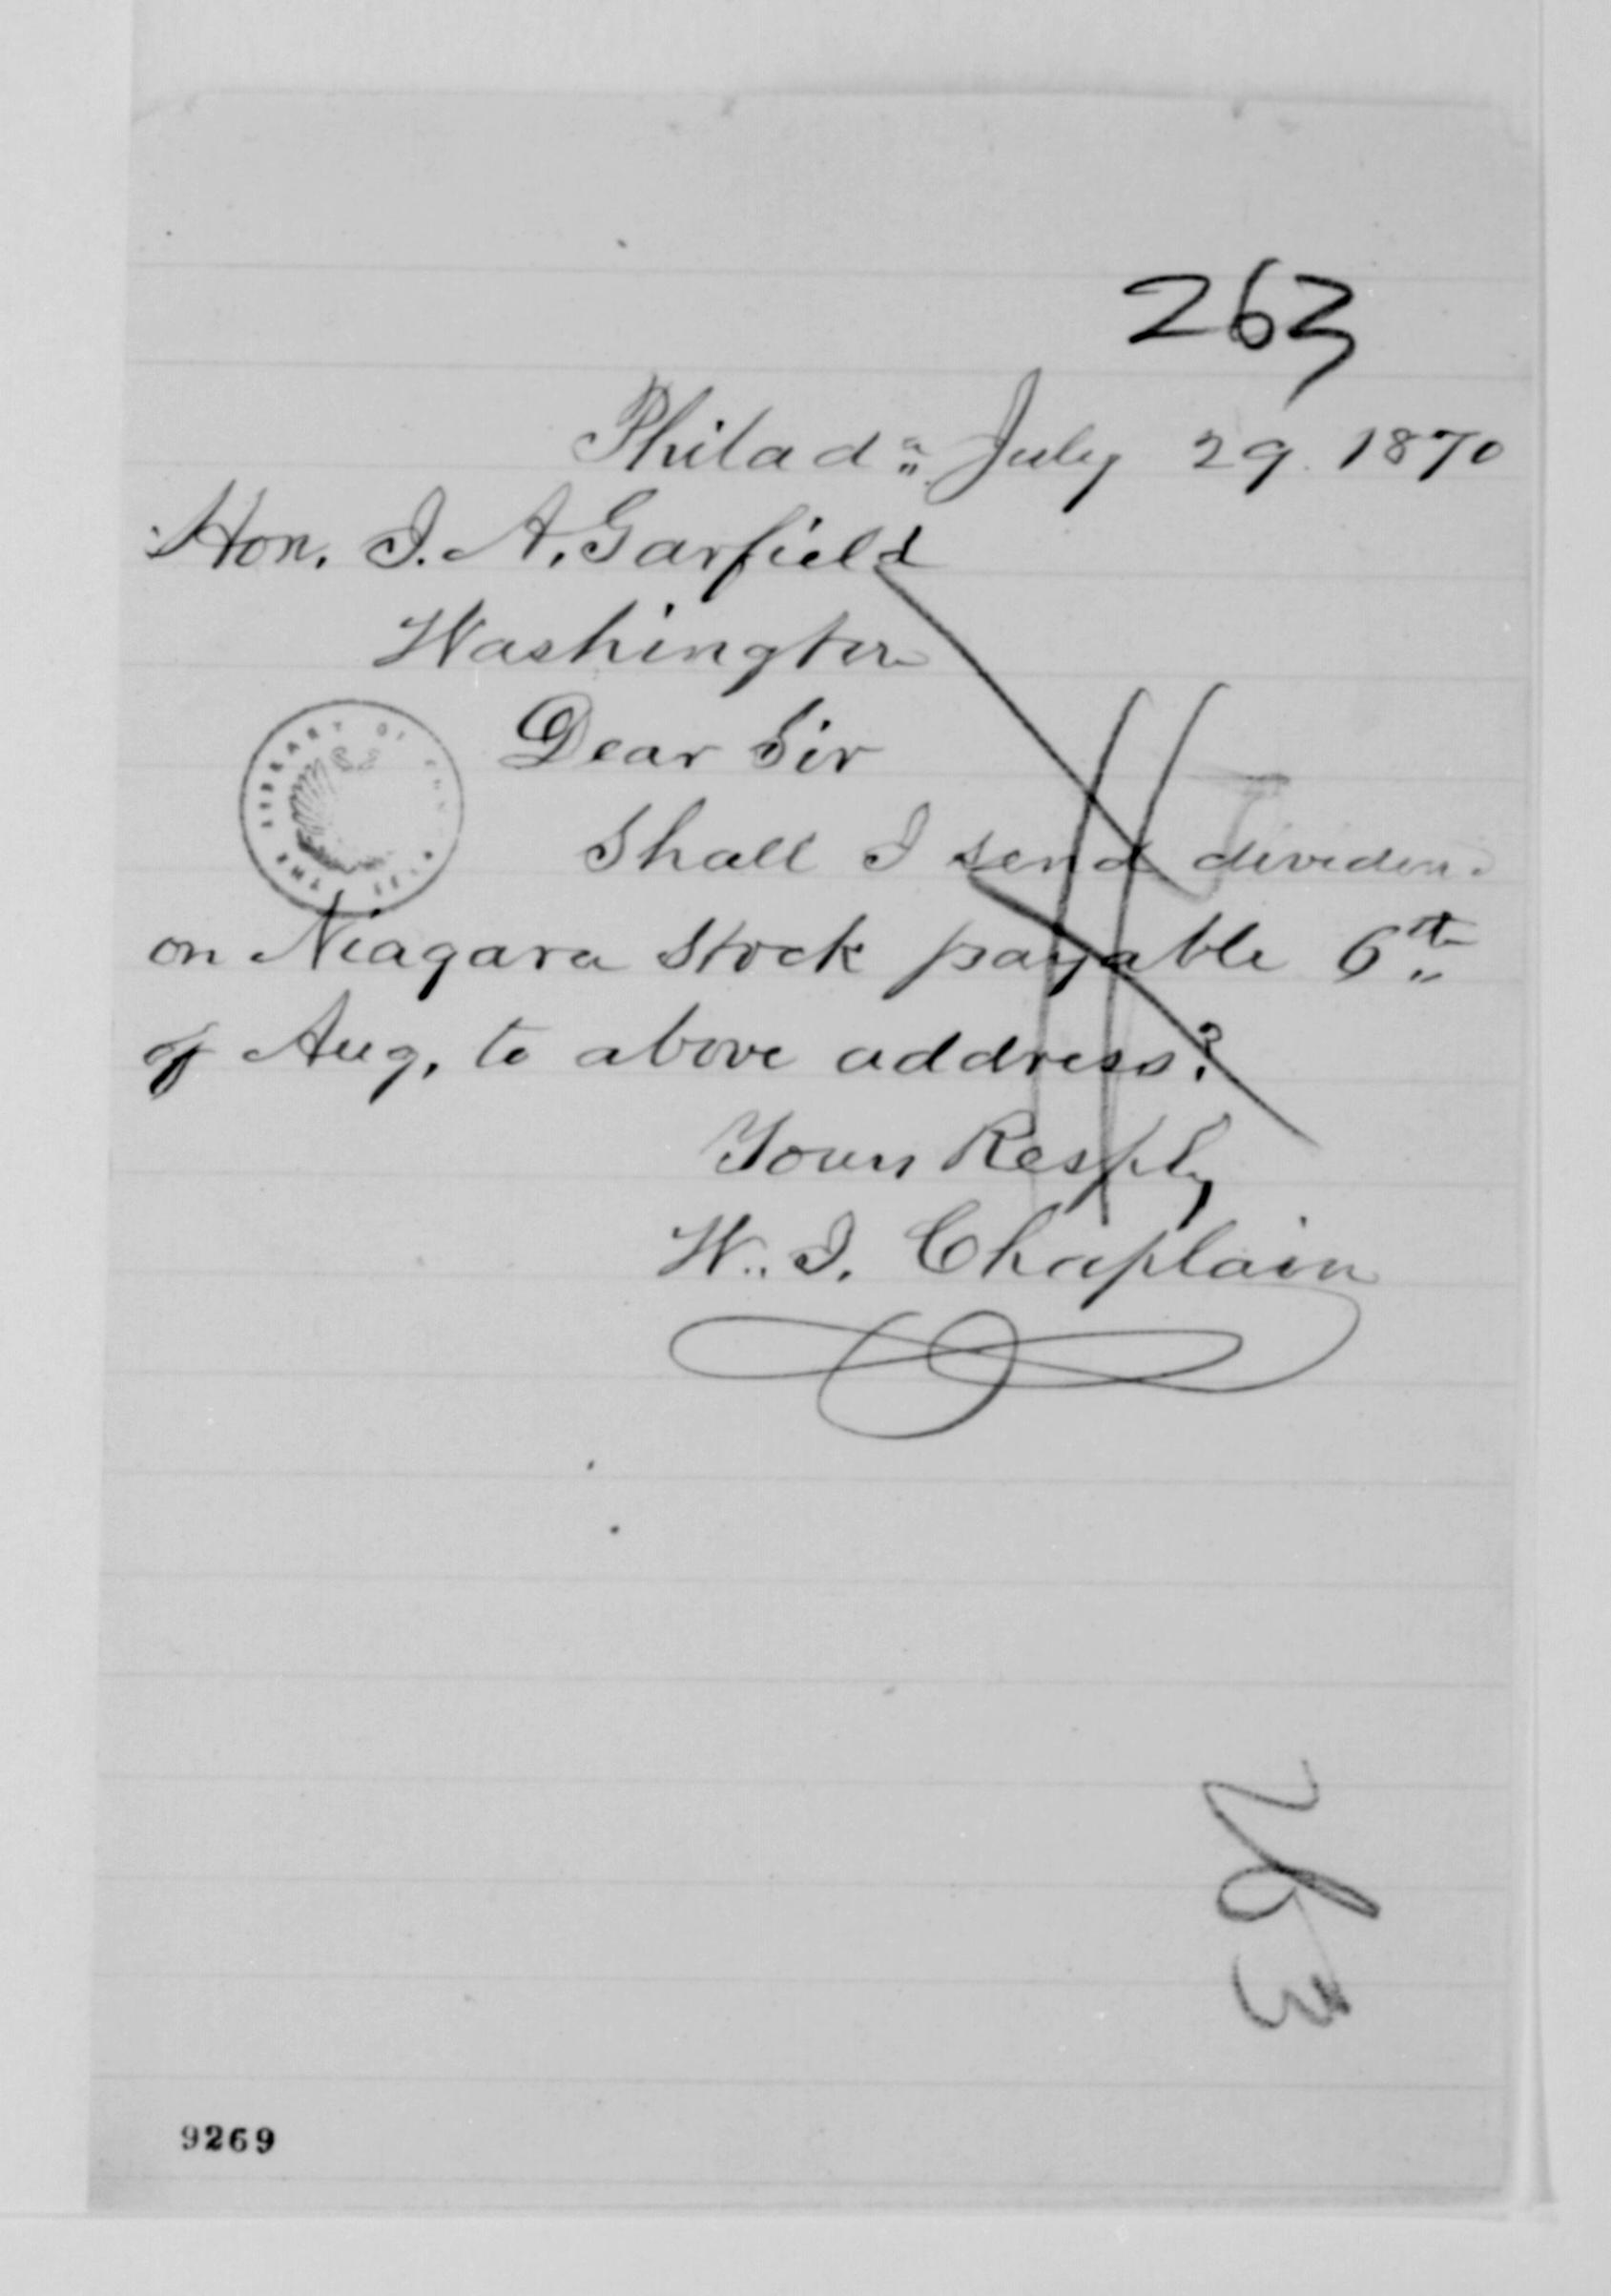 263
Philad.a July 29. 1870
Hon. J. A. Garfield
Washington
Dear Sir
Shall I send dividend
on Niagara Stock payable 6th
of Aug, to above address?
Yours Resply
W. J. Chaplain
THE LIBRARY OF CONGRESS
263
9269